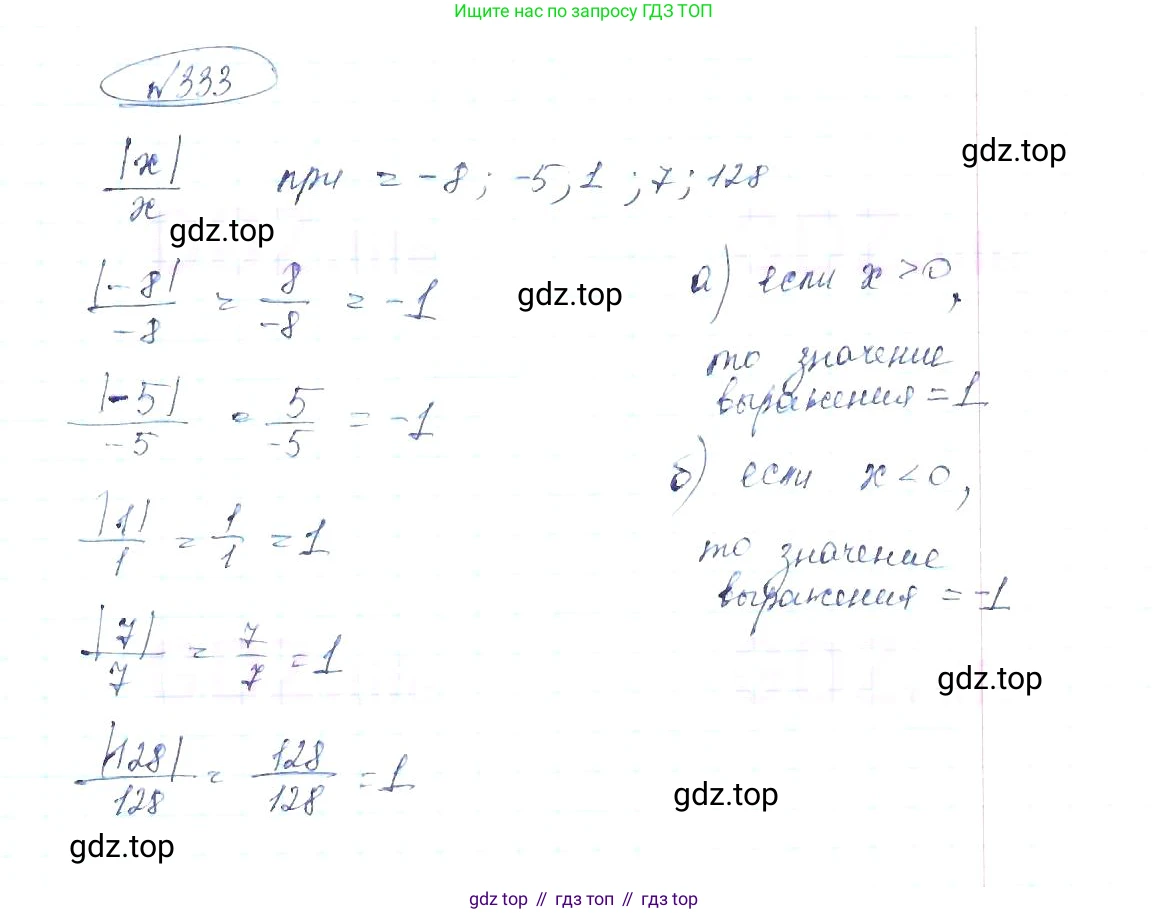 Ищите нас по запросу ГДЗ ТОП
№333
|x|/x при = -8; -5; 1; 7; 128
gdz.top
gdz.top
|-8|/-8 = 8/-8 = -1
gdz.top
|-5|/-5 = 5/-5 = -1
|1|/1 = 1/1 = 1
|7|/7 = 7/7 = 1
|128|/128 = 128/128 = 1
а) если x > 0,
то значение
выражения = 1
б) если x < 0,
то значение
выражения = -1
gdz.top
gdz.top
gdz.top
gdz top // гдз топ // гдз top